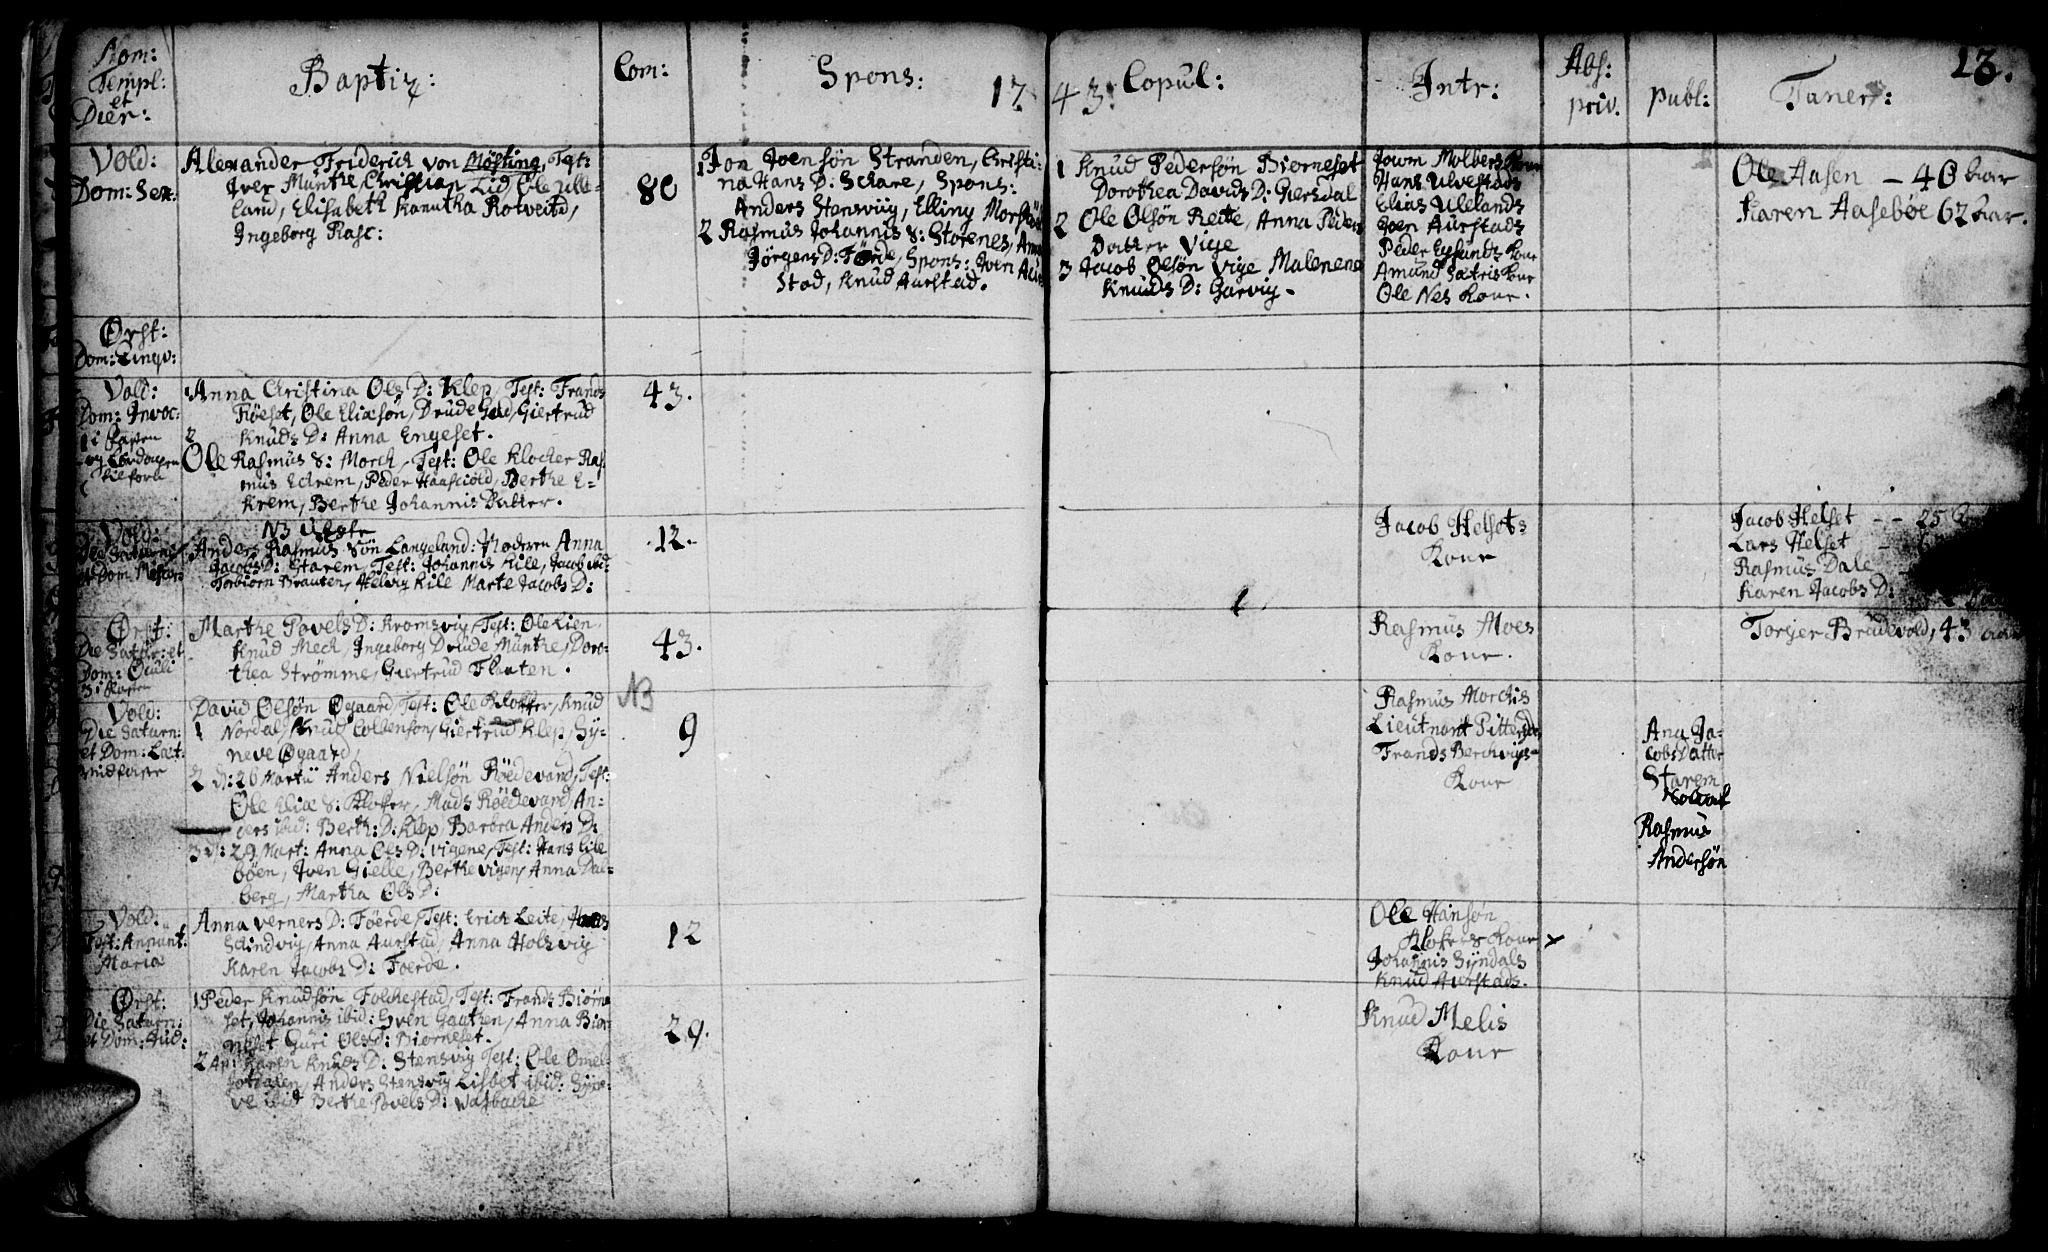 Nom:
Templ:
et
Dier:
Baptiz:
Com:
Spons:
1743.
Copul:
Intr:
Abs:
priv.
publ:
Funer:
13.
Vold:
Dom: Sex:
Alexander Friderich von Møsting, Test:
Iver Munthe, Christian Lid, Ole Ulle-
land, Elisabeth Kanutha Rotveitd,
Ingeborg Rasc:
80
1 Jon Joensøn Stranden, Christi-
na Hans D: Schare, Spons:
Anders Stensviig, Elling
2 Rasmus Johannis S: Storenes,
Jørgens D: Førde, Spons: Iven
stad, Knud Aurstad.
1 Knud Pedersøn Biørneset
Dorothea Davids D: Giersdal
2 Ole Olsøn Reite, Anna Peders
Datter Vige
3 Jacob Olsøn Vige Malenene
Knuds D: Garvig.
Molbers Kone
Hans Ulvestads
Elias Ulelands
Joen Aurstads
Peder Egsunds Kone
Amund Sætris Kone
Ole Nes Kone.
Ole Aasen - 40 aar
Karen Aasebøe 62 aar.
Ørst:
Dom: Qinqv:
Vold:
Dom: Invoc:
1 i fasten
Anna Christina Ols D: Klep, Test: Frands
Røeset, Ole Eliæsøn, Drude Gad, Giertrud
Knuds D: Anna Engeset.
2
Ole Rasmus S: Morch, Test: Ole Klocher Ras
mus Echrem, Peder Haaschiold, Berthe E-
krem, Berthe Johannis Datter.
43.
Vold:
et Dom:
NB Uægte
Anders Rasmus Søn Langeland: Moderen Anna
Jacobs D: Starem, Test: Johannis Kile, Jacob ibid:
Torbiørn Brauten, Helvig Kile Marte Jacobs D:
12.
Jacob Helsets
Kone
Jacob Helset - - 25
Lars Helset -
Rasmus Dale
Karen Jacobs D:
Ørst:
Die Satur: et
Dom: Oculi
3 i fasten
Marthe Povels D: Kromsvig, Test: Ole Lien,
Knud Mech, Ingeborg Drude Munthe, Doro-
thea Strømme, Giertrud Flaaten.
43.
Rasmus Moes
Kone.
Torger Brudevold, 43 aar
Vold:
Die Saturn:
et Dom: Læt:
midfaste
David Olsøn Øgaard, Test: Ole Klokker, Knud
1 Nordal, Knud Collensøn, Giertrud Klep, Sy-
neve Øgaard,
2 d: 26 Martii Anders Nielsøn Røedevand, Test:
Ole Eliæ S: Kloker, Mads Røedevand, An-
ders ibid: Berth: D: Klep, Barbra Anders D:
3 d: 29 Mart: Anna Ols D: vigene, Test: Hans Lille
bøen, Iven Gielle, Berthe vigen, Anna Dal-
berg, Martha Ols D:
NB
9
Rasmus Morchis
Lieutnant
Frands Berchvigs
Kone
Ana Ja-
cobs Datter
Starem
Rasmus
Andersøn
Vold:
Fest: Annunt:
Mariæ
Anna Verners D: Føerde, Test: Erich Leite,
Schindvig, Anna Aurstad, Anna Holsvig
Karen Jacobs D: Foerde.
12
Ole Hansøn
Klokers Kone
Johannis Syndals
Knud Aurstads.
Ørst:
Die Saturn:
et Dom: Jud:
1 Peder Knudsøn Folchestad, Test: Frands Biørne
set, Johannis ibid: Sven Gautsen, Anna Biør-
neset Guri Olsd: Biørneset.
2 Karen Knuds D: Stensvig Test: Ole Omel-
Anders Stensvig Lisbet ibid:
ve ibid Berthe Povels D: Wasbache
29.
Knud Melis
Kone